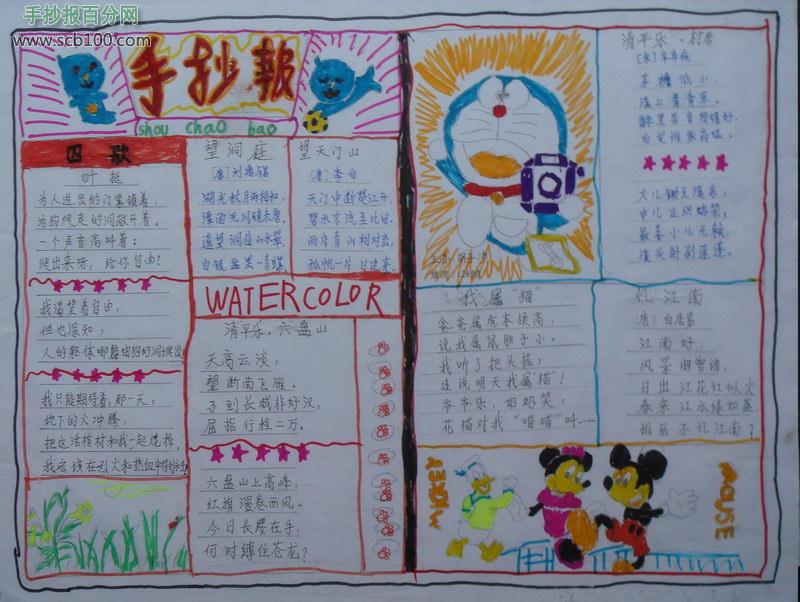 手抄报百分网
www.scb100.com
手抄报
shou chao bao
囚歌
叶挺
为人进出的门紧锁着,
为狗爬走的洞敞开着。
一个声音高叫着:
爬出来呀,给你自由!
我渴望着自由,
但也深知,
人的躯体哪能由狗的洞子爬出!
我只能期待着,那一天,
地下的火冲腾,
把这活棺材和我一起烧掉,
望洞庭
[唐]刘禹锡
湖光秋月两相和,
潭面无风镜未磨。
遥望洞庭山水翠,
白银盘里一青螺。
望天门山
[唐]李白
天门中断楚江开,
碧水东流至此回。
两岸青山相对出,
孤帆一片日边来。
WATERCOLOR
清平乐·六盘山
天高云淡,
望断南飞雁。
不到长城非好汉,
屈指行程二万。
六盘山上高峰,
红旗漫卷西风。
今日长缨在手,
何时缚住苍龙?
清平乐·村居
[宋]辛弃疾
茅檐低小,
溪上青青草。
醉里吴音相媚好,
白发谁家翁媪。
大儿锄豆溪东,
中儿正织鸡笼,
最喜小儿无赖,
溪头卧剥莲蓬。
我属“猫”
爸爸属虎本领高,
说我属鼠胆子小。
我听了把头摇,
连说明天我属“猫”!
爷爷乐,奶奶笑,
花猫对我“喵喵”叫……
忆江南
[唐]白居易
江南好,
风景旧曾谙,
日出江花红似火
春来江水绿如蓝,
能不忆江南?
MICKEY
MOUSE